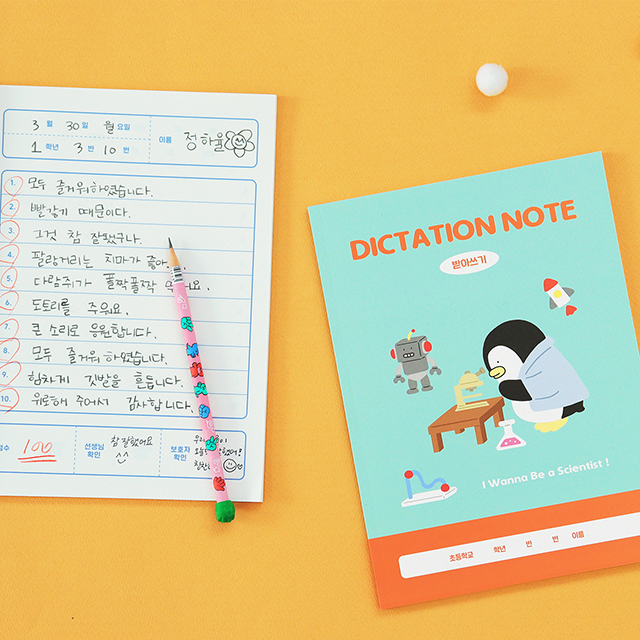 3 월 30 일 월 요일
1 학년 3 반 10 번
이름 정하율
1. 모두 즐거워하였습니다.
2. 빨갛기 때문이다.
3. 그것 참 잘됐구나.
4. 팔랑거리는 치마가 좋아
5. 다람쥐가 폴짝폴짝
6. 도토리를 주워요.
7. 큰 소리로 응원합니다.
8. 모두 즐거워하였습니다.
9. 힘차게 깃발을 흔듭니다.
10. 위로해 주어서 감사합니다.
점수 100
선생님 확인 참 잘했어요 ^^
보호자 확인
DICTATION NOTE
받아쓰기
I Wanna Be a Scientist !
초등학교 학년 반 번 이름